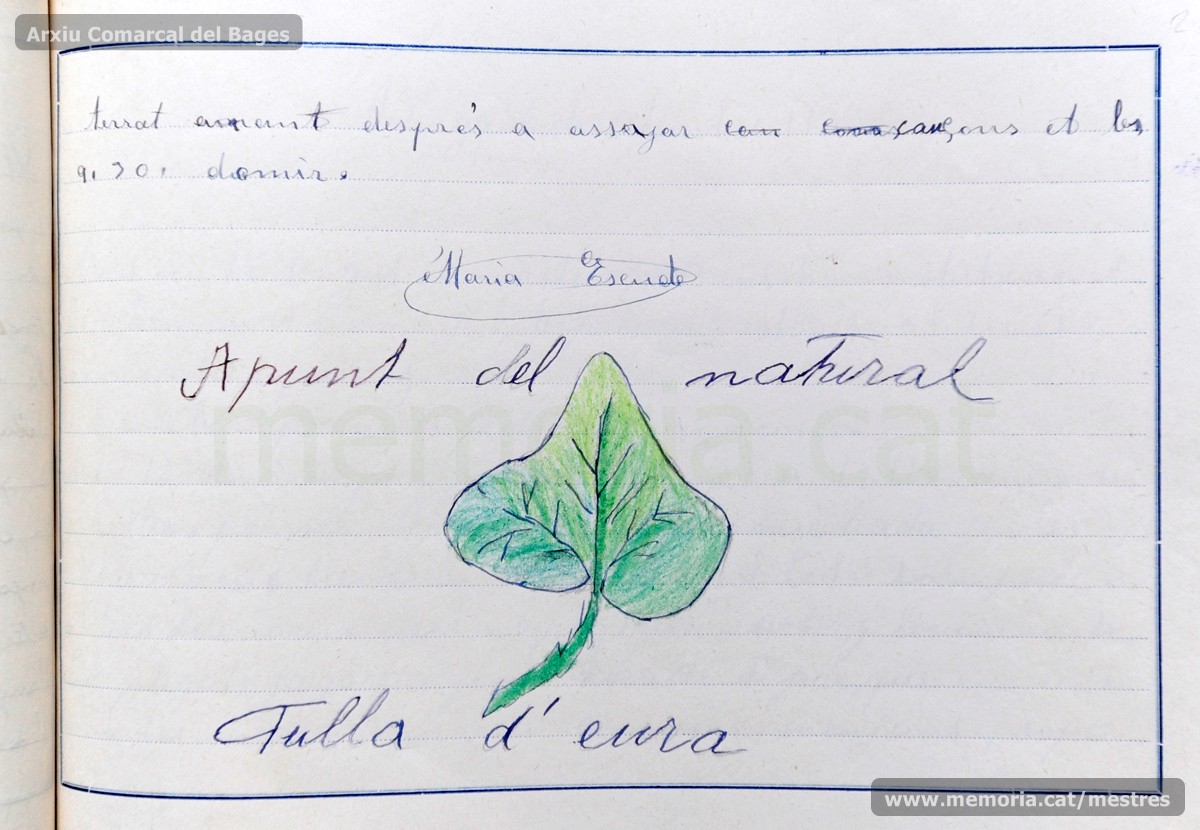 Arxiu Comarcal del Bages
2
terrat després a assajar can cançons et les
9,30, domir.
Maria Escude
Apunt del natural
memoria.cat
Fulla d'eura
www.memoria.cat/mestres